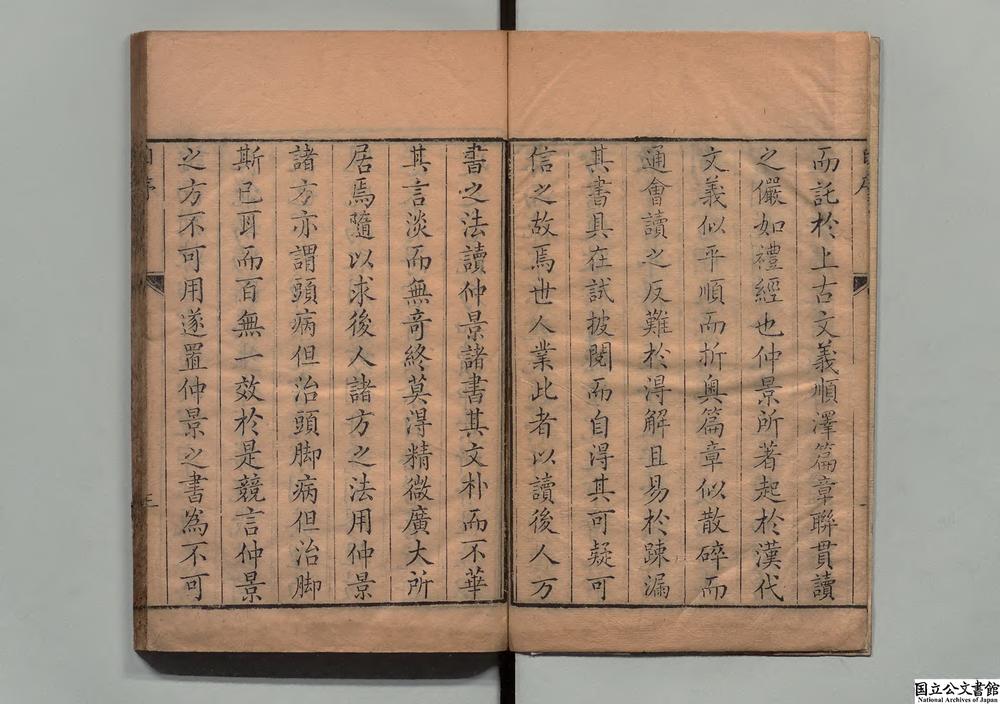 而託於上古文義順澤篇章聯貫讀
之儼如禮經也仲景所著起於漢代
文義似平順而折奧篇章似散碎而
通會讀之反難於得解且易於踈漏
其書具在試披閱而自得其可疑可
信之故焉世人業此者以讀後人方
書之法讀仲景諸書其文朴而不華
其言淡而無奇終莫得精微廣大所
居焉隨以求後人諸方之法用仲景
諸方亦謂頭病但治頭脚病但治脚
斯已耳而百無一效於是競言仲景
之方不可用遂置仲景之書為不可
国立公文書館
National Archives of Japan